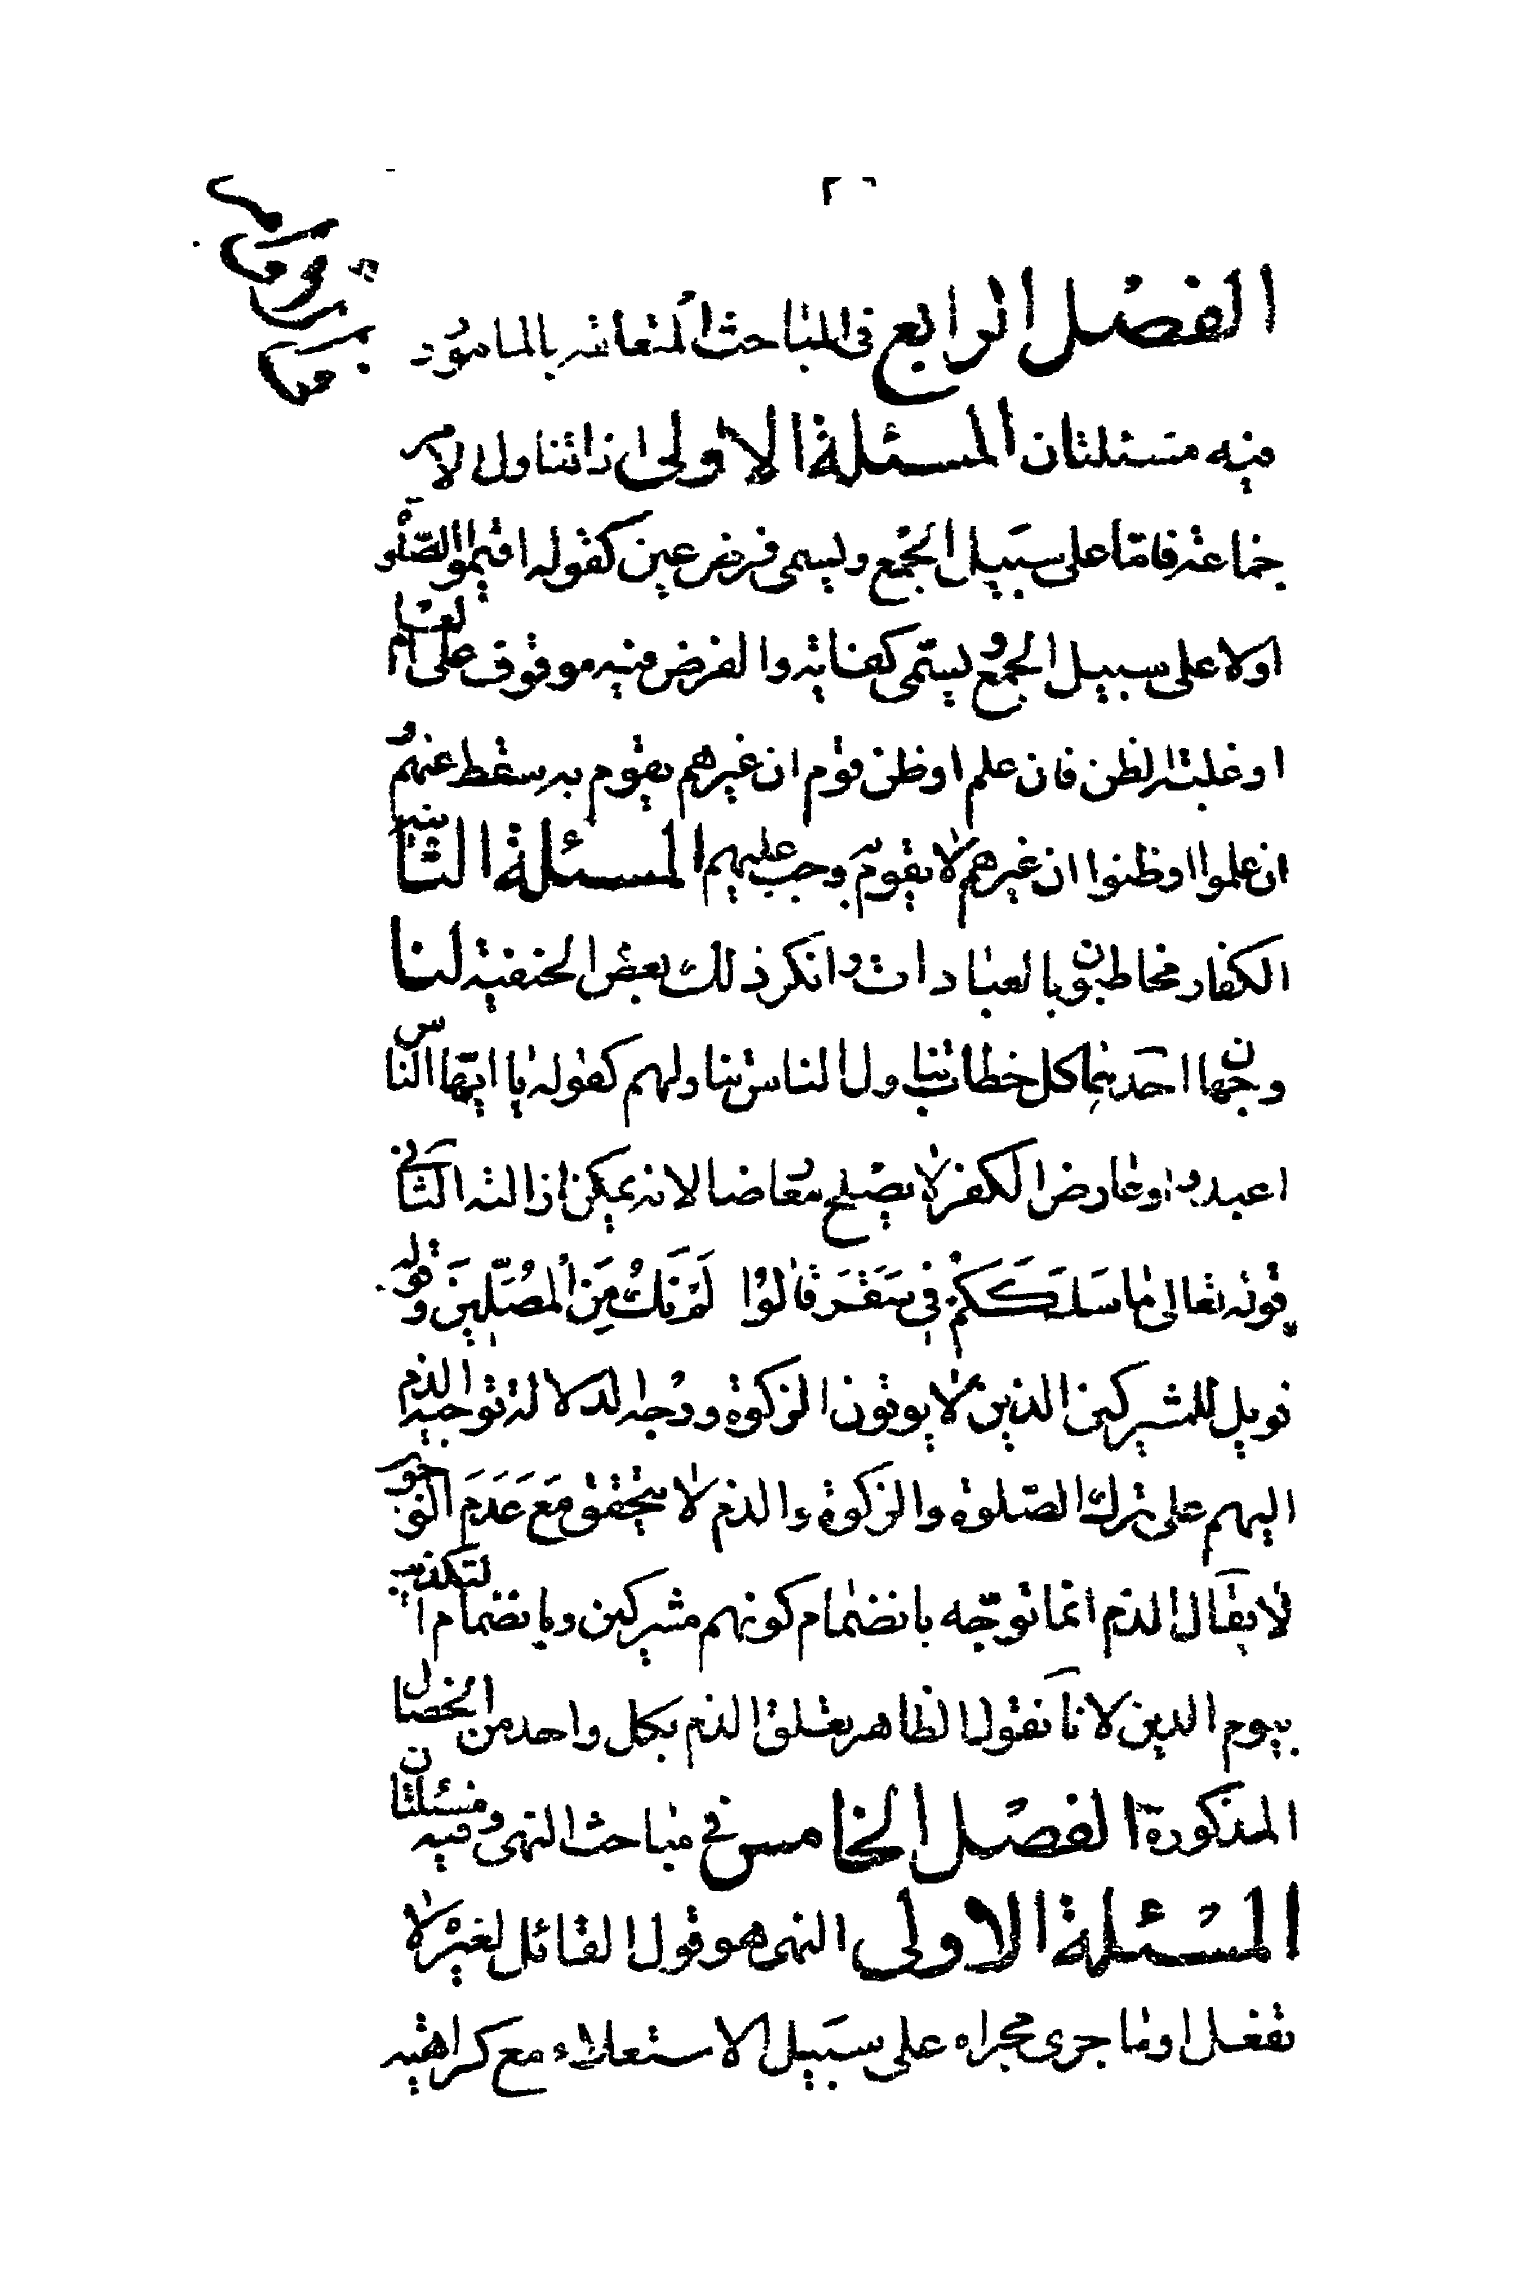 الفصل الرابع فى المباحث المتعلقه بالمامور
فيه مسئلتان المسئلة الاولى اذا تناول الامر
جماعة فاما على سبيل الجمع ويسمى فرض عين كقوله اقيموا الصلوة
اولا على سبيل الجمع ويسمى كفاية والفرض فيه موقوف على العلم
او غلبة الظن فان علم او ظن قوم ان غيرهم يقوم به سقط عنهم و
ان علموا او ظنوا ان غيرهم لا يقوم به وجب عليهم المسئلة الثانية
الكفار مخاطبون بالعبادات وانكر ذلك بعض الحنفية لنا
وجهان احدهما كل خطاب تناول الناس يتناولهم كقوله يا ايها الناس
اعبدوا وعارض الكفر لا يصلح معارضا لانه يمكن ازالته الثانى
قوله تعالى ما سَلَكَكُمْ فى سَقَرَ قالوا لَمْ نَكُ مِنَ الْمُصَلّينَ وقوله
فويل للمشركين الذين لا يوتون الزكوة ووجه الدلالة توجيه الذم
اليهم على ترك الصلوة والزكوة والذم لا يتحقق مَعَ عَدَمِ الوجوب
لا يقال الذم انما توجّه بانضمام كونهم مشركين وبانضمام التكذيب
بيوم الدين لانا نقول الظاهر تعلق الذم بكل واحد من الخصال
المذكورة الفصل الخامس فى مباحث النهى وفيه مسئلتان
المسئلة الاولى النهى هو قول القائل لغيره لا
تفعل او ما جرى مجراه على سبيل الاستعلاء مع كراهته